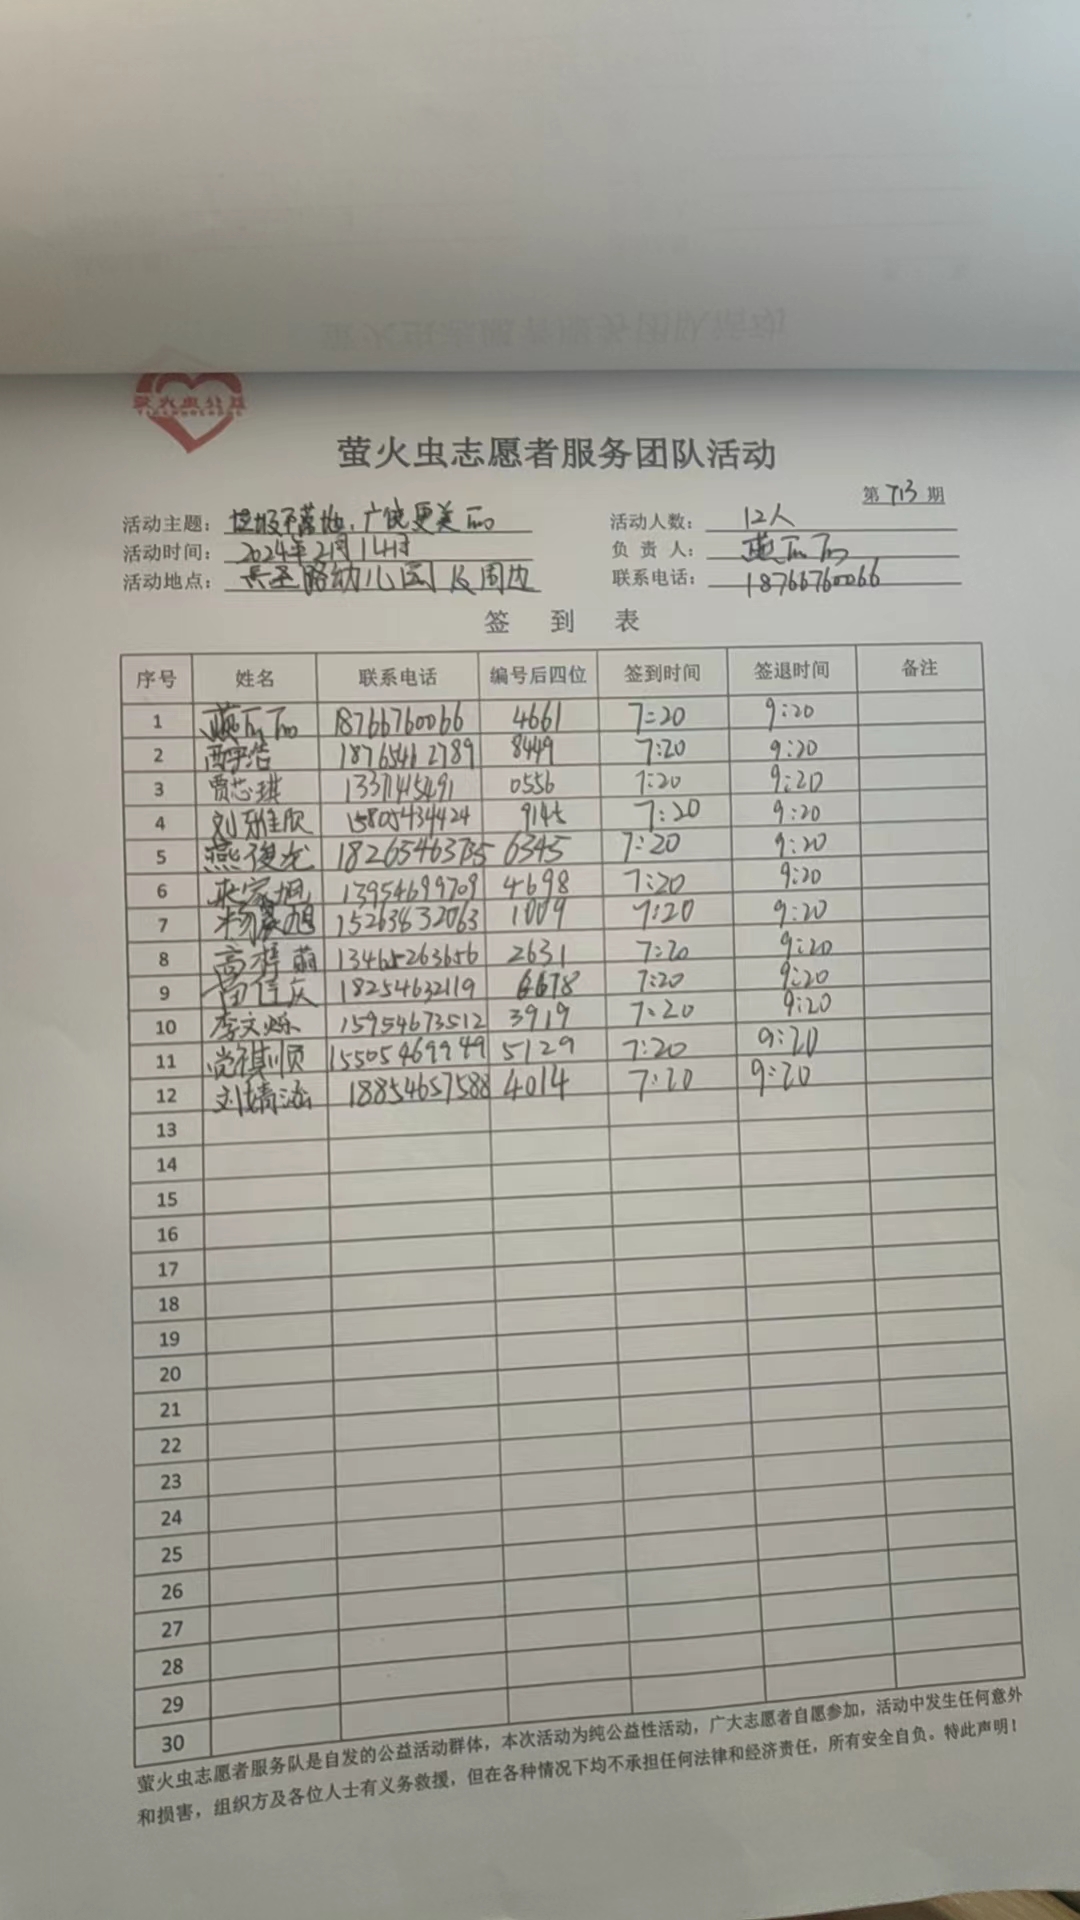 萤火虫公益
萤火虫志愿者服务团队活动
第 713 期
活动主题：垃圾不落地，广饶更美丽 活动人数：12人
活动时间：2024年2月14日 负 责 人：燕丽丽
活动地点：兵圣路幼儿园及周边 联系电话：18766760066
签 到 表
序号 姓名 联系电话 编号后四位 签到时间 签退时间 备注
1 燕丽丽 18766760066 4661 7:20 9:20
2 18765462789 8449 7:20 9:20
3 贾芯琪 13371415491 0556 7:20 9:20
4 刘雅欣 15805434424 9145 7:20 9:20
5 燕俊龙 18265463735 6345 7:20 9:20
6 家旭 13954699709 4698 7:20 9:20
7 杨晨旭 15263832063 1009 7:20 9:20
8 高梓萌 13465263656 2631 7:20 9:20
9 18254632119 6678 7:20 9:20
10 李文烁 15954673512 3919 7:20 9:20
11 尚祺顺 15505469949 5129 7:20 9:20
12 刘婧涵 18854657588 4014 7:20 9:20
13
14
15
16
17
18
19
20
21
22
23
24
25
26
27
28
29
30
萤火虫志愿者服务队是自发的公益活动群体，本次活动为纯公益性活动，广大志愿者自愿参加，活动中发生任何意外
和损害，组织方及各位人士有义务救援，但在各种情况下均不承担任何法律和经济责任，所有安全自负。特此声明！